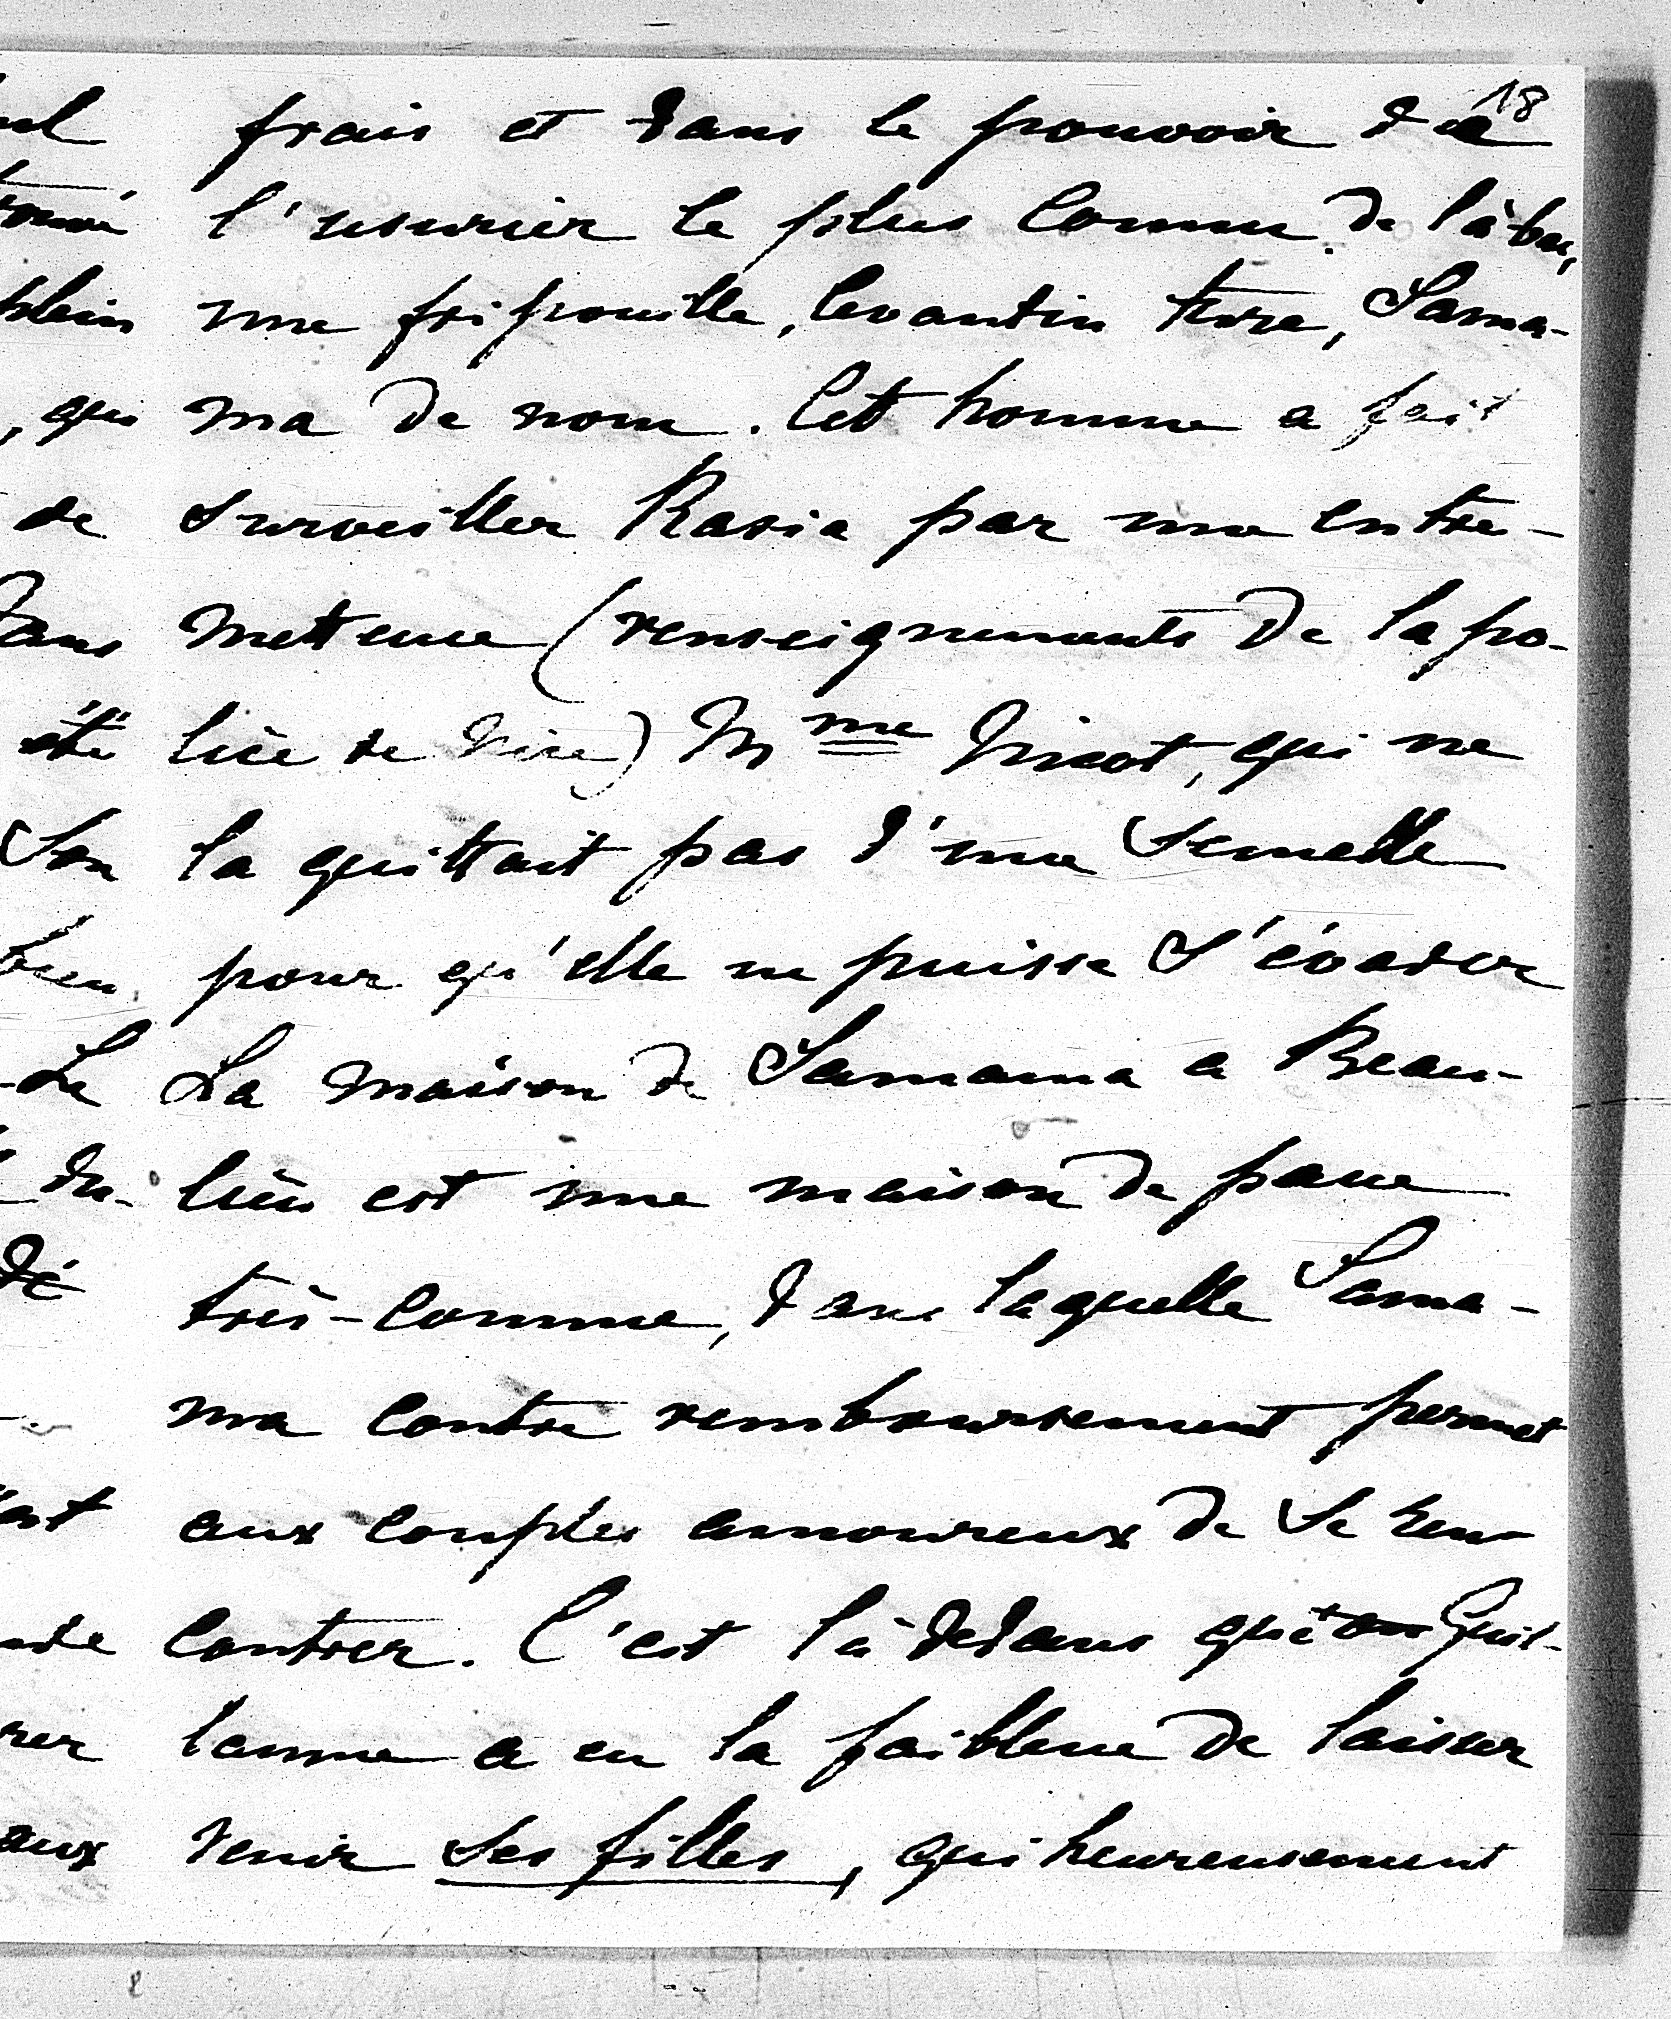 18
frais et dans le pouvoir de
l'usurier le plus connu de là-bas,
une fripouille, levantin turc, Sama-
ma de nom. Cet homme a fait
surveiller Rasia par une entre-
metteuse (renseignements de la po-
lice de Nice) Mme Nicot, qui ne
la quittait pas d'une semelle
pour qu'elle ne puisse s'évader
La maison de Samama a Beau-
lieu est une maison de passe
très-connue, dans laquelle Sama-
ma contre remboursement permet
aux couples amoureux de se ren-
contrer. C'est là dedans que Guil-
laume a eu la faiblesse de laisser
venir ses filles, qui heureusement